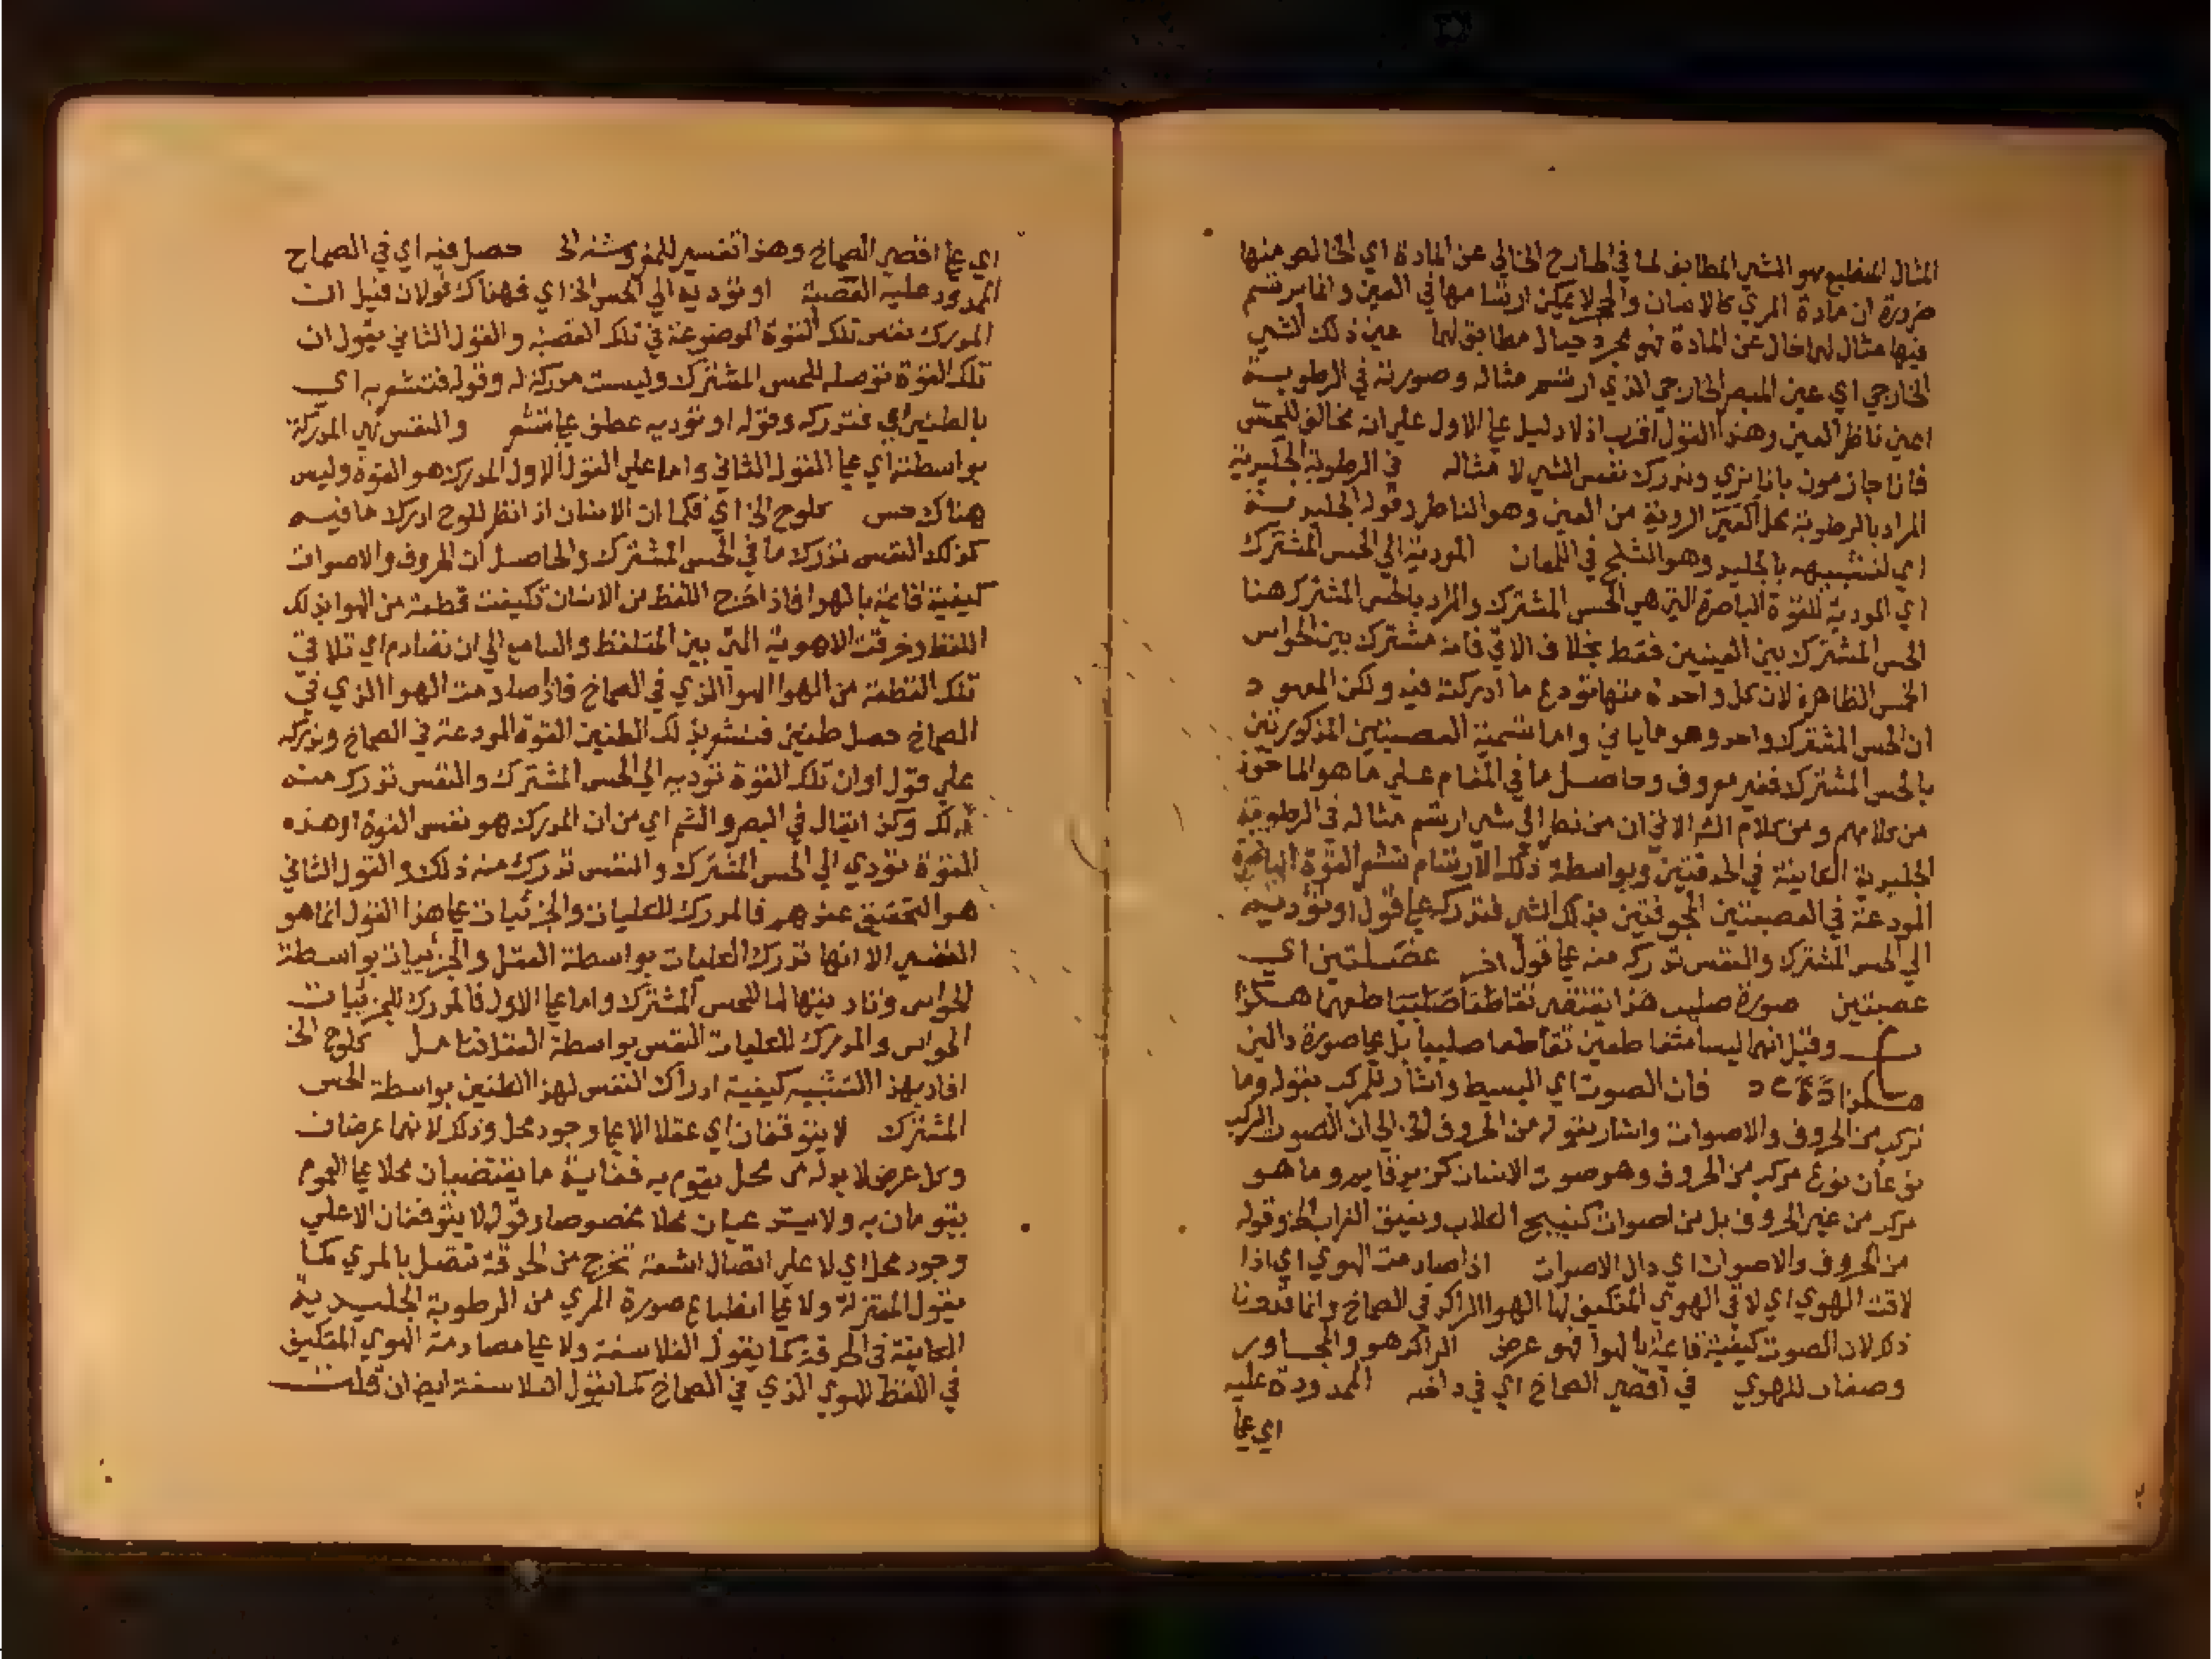 المثال المنطبع هو الشي المطابق لما في الخارج الخالي عن المادة اي الخالص منها
ضرورة ان مادة المري كالانسان والحجر لا يمكن ارتسامها في العين وانما يرتسم
فيها مثال لها خال عن المادة فهو مجرد خيال مطابق لها عين ذلك الشي
الخارجي اي عين المبصر الخارجي الذي ارتسم مثاله وصورته في الرطوبة
اعين ناظر العين وهذا القول اقرب اذ لا دليل علي الاول علي انه مخالف للحس
فانا جازمون بانا نري وندرك نفس الشي لا مثاله في الرطوبة الجليدية
المراد بالرطوبة محل الروية من العين وهو الناظر وقوله الجليدية
اي لتشبيهه بالجليد وهو الثلج في اللمعان المودية الي الحس المشترك
اي المودية للقوة الباصرة التي هي الحس المشترك والمراد بالحس المشترك هنا
الحس المشترك بين العينين فقط بخلاف الاتي فانه مشترك بين الحواس
الخمس الظاهرة لان كل واحدة منها تودع ما ادركته فيه ولكن المعهود
ان الحس المشترك واحد وهو ما ياتي واما تسمية العصبتين المذكورتين
بالحس المشترك فغير معروف وحاصل ما في المقام علي ما هو الماخوذ
من كلامهم ومن كلام الش الاتي ان من نظر الي شي ارتسم مثاله في الرطوبة
الجليدية الكاينة في الحدقتين وبواسطة ذلك الارتسام تشعر القوة الباصرة
المودعة في العصبتين المجوفتين بذلك الشي فتدركه علي قول او توديه
الي الحس المشترك والنفس تدركه منه علي قول اخر عضلتين اي
عصبتين صورة صليب هذا يقتضي تقاطعا صليبيا طعهما هكذا
وقيل انهما ليسا متقاطعين تقاطعا صليبيا بل علي صورة دالين
هكذا فان الصوت اي البسيط واشار للمركب بقوله وما
تركب من الحروف والاصوات واشار بقوله من الحروف الخ الي ان الصوت المركب
نوعان نوع مركب من الحروف وهو صوت الانسان كزيد قايم وما هو
مركب من غير الحروف بل من اصوات كنبيح الكلاب ونعيق الغراب الخ وقوله
من الحروف والاصوات اي دال الاصوات اذا صادمت الهوي اي اذا
لاقت الهوي اي لاقي الهوي المتكيف بها الهوا الراكد في الصماخ وانما قدرنا
ذلك لان الصوت كيفية قايمة بالهوا فهو عرض الراكد هو والمجاور
وصفان للهوي في اقصي الصماخ اي في داخله الممدودة عليه
اي علي
اي علي اقصي الصماخ وهذا تفسير للمفروشة الخ حصل فيه اي في الصماخ
الممدود عليه العصبة او توديه الي الحس الخ اي فهناك قولان قيل ان
المدرك نفس تلك القوة الموضوعة في تلك العصبة والقول الثاني يقول ان
تلك القوة توصله للحس المشترك وليست مدركة له وقوله فتشعر به اي
بالطنين اي فتدركه وقوله او توديه عطف علي تشعر والنفس هي المدركة
بواسطته اي علي القول الثاني واما علي القول الاول المدرك هو القوة وليس
هناك حس كلوح الخ اي فكما ان الانسان اذا نظر للوح ادرك ما فيه
كذلك النفس تدرك ما في الحس المشترك والحاصل ان الحروف والاصوات
كيفية قايمة بالهوا فاذا خرج اللفظ من الانسان تكيفت قطعة من الهوا بذلك
اللفظ وخرقت الاهوية التي بين المتلفظ والسامع الي ان تصادم اي تلاقي
تلك القطعة من الهوا الهوا الذي في الصماخ فاذا صادمت الهوا الذي في
الصماخ حصل طنين فتشعر بذلك الطنين القوة المودعة في الصماخ وتدركه
علي قول او ان تلك القوة توديه الي الحس المشترك والنفس تدركه منه
وكذا يقال في البصر والشم اي من ان المدرك هو نفس القوة او هذه
القوة تودي الي الحس المشترك والنفس تدرك منه ذلك والقول الثاني
هو التحقيق عندهم فالمدرك للكليات والجزئيات علي هذا القول انما هو
النفس الا انها تدرك الكليات بواسطة العقل والجزييات بواسطة
الحواس وتاديتها لما للحس المشترك واما علي الاول فالمدرك للجزئيات
الحواس والمدرك للكليات النفس بواسطة العقل فتامل كلوح الخ
افاد بهذا التشبيه كيفية ادراك النفس لهذا الطنين بواسطة الحس
المشترك لا يتوقفان اي عقلا الا علي وجود محل وذلك لانهما عرضان
وكل عرض لا بد له من محل يقوم به فغاية ما يقتضيان محلا علي العموم
يقومان به ولا يستدعيان محلا مخصوصا وقوله لا يتوقفان الا علي
وجود محل اي لا علي اتصال اشعة تخرج من الحدقة تتصل بالمري كما
يقول المعتزلة ولا علي انطباع صورة المري من الرطوبة الجليدية
الكاينة في الحدقة كما يقول الفلاسفة ولا علي مصادمة الهوي المتكيف
في اللفظ للهوي الذي في الصماخ كما يقول الفلاسفة ايض ان قلت